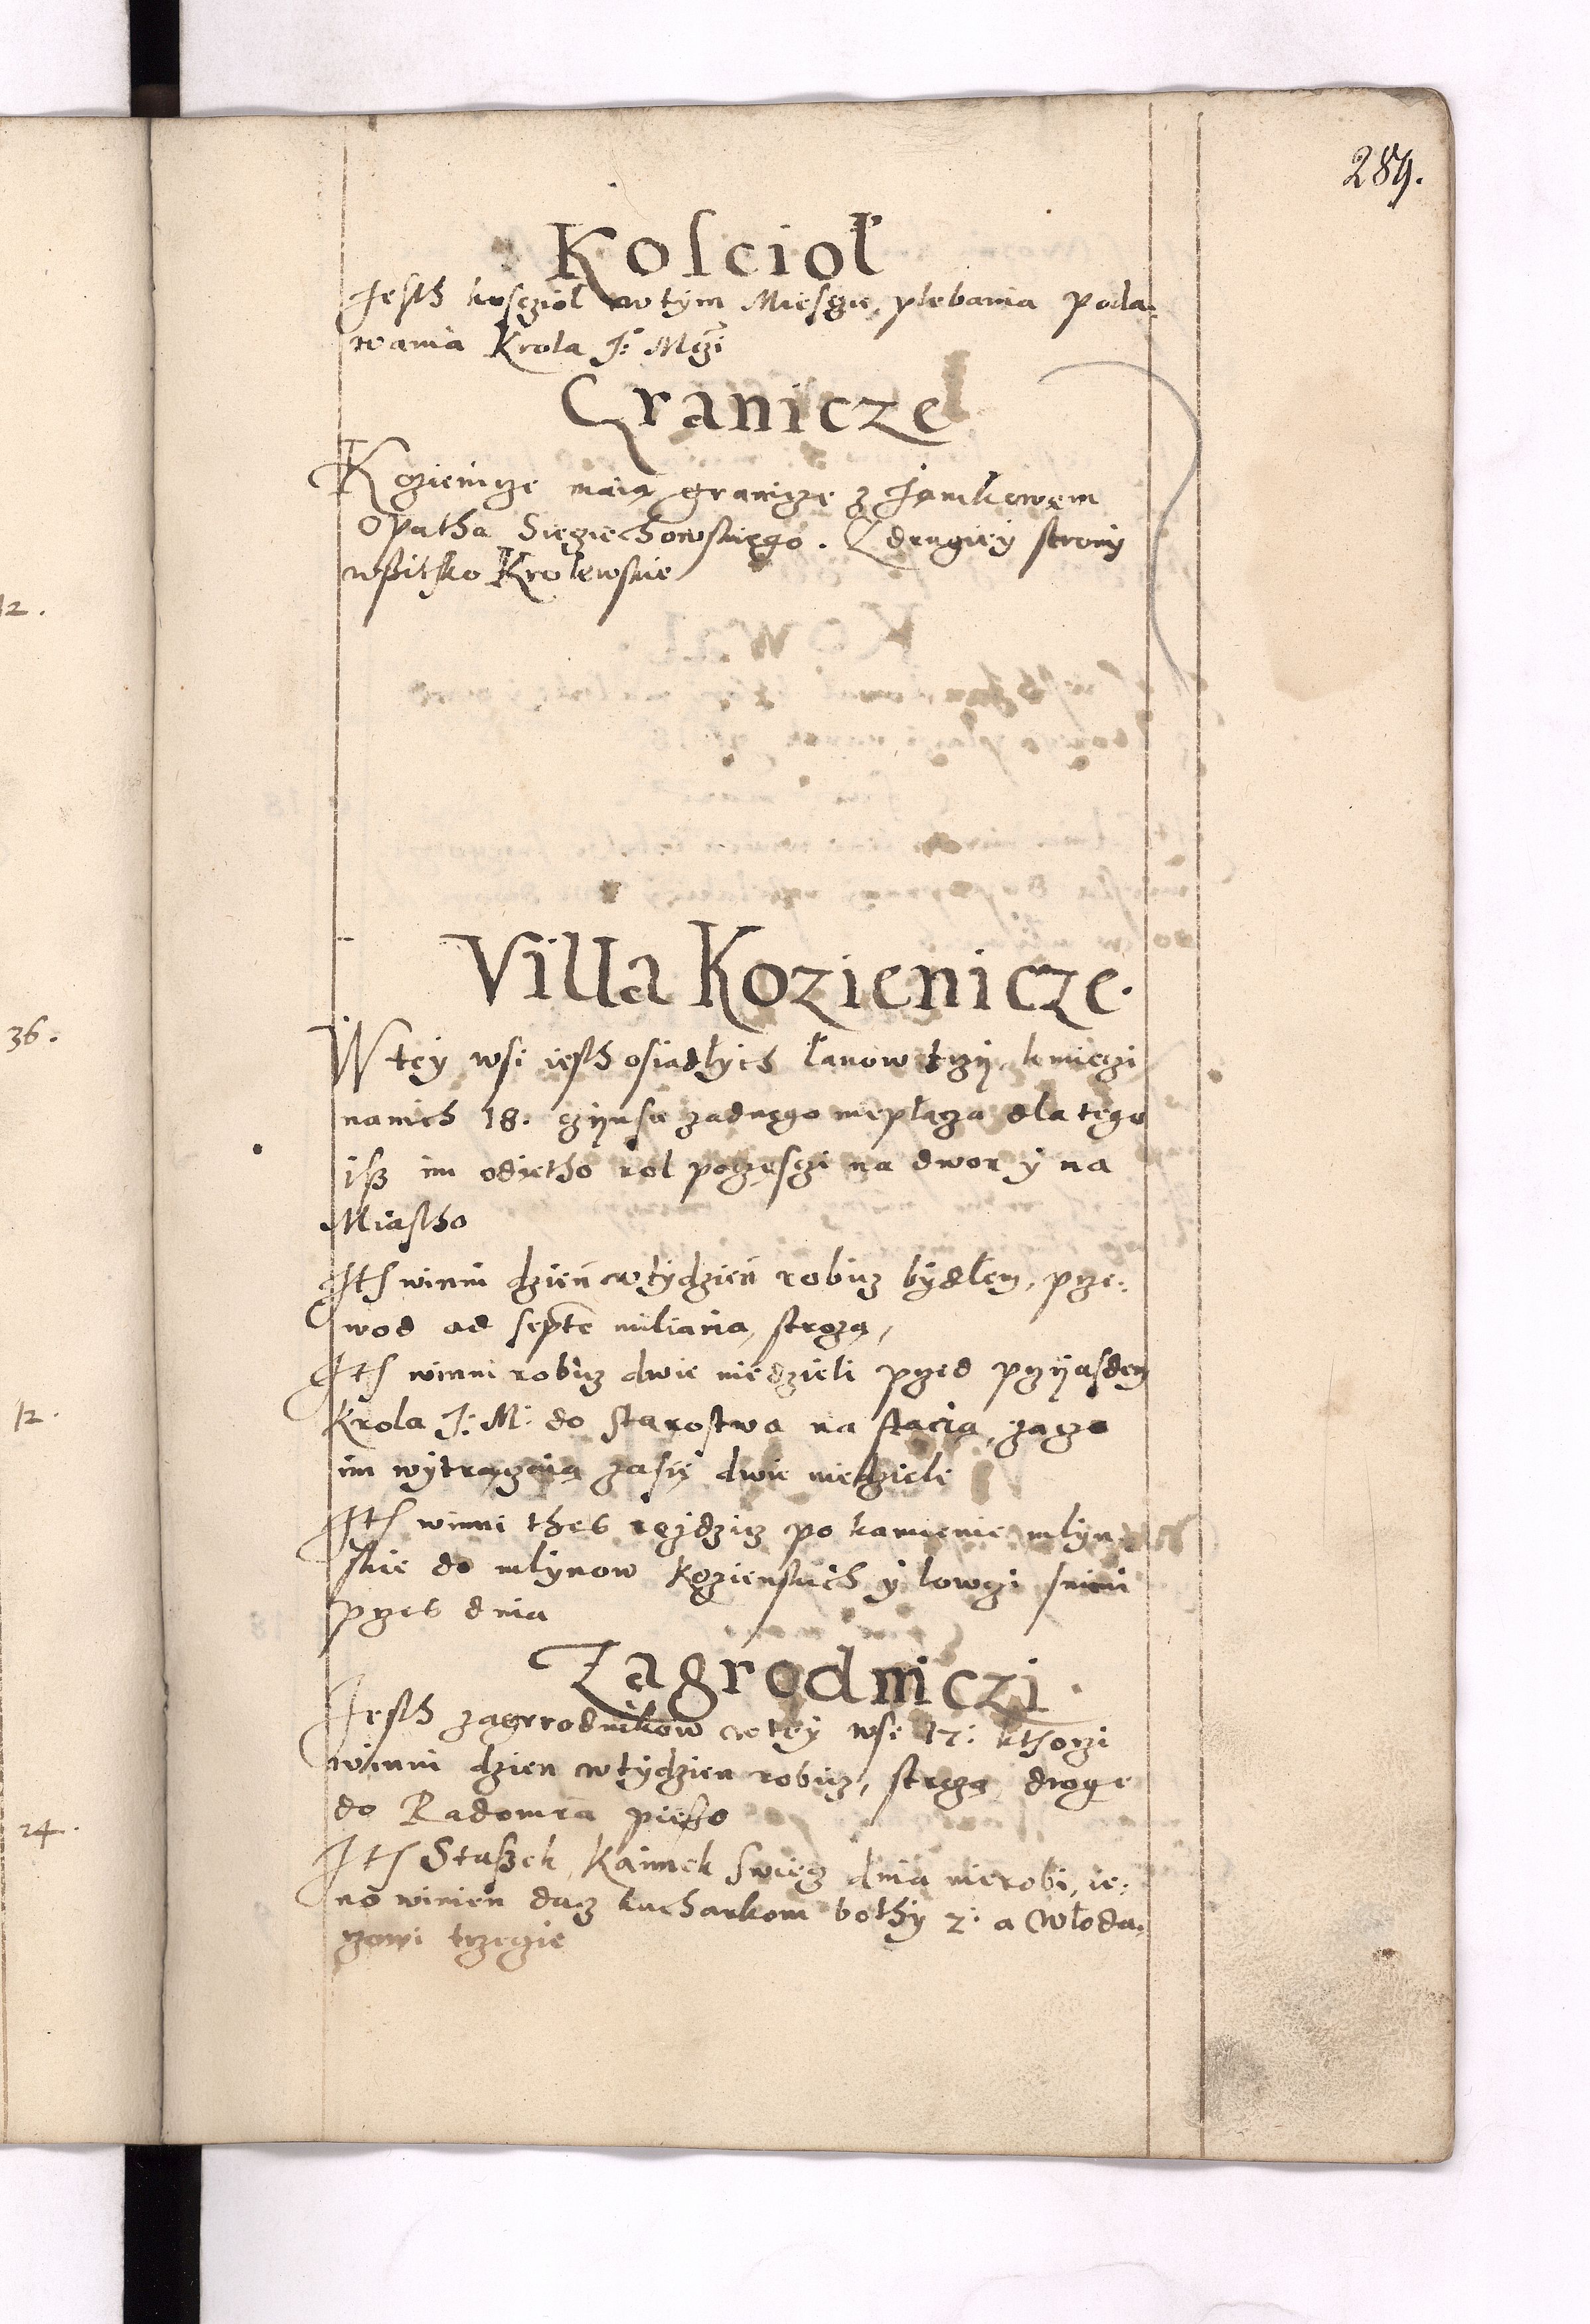 289.
Koscioł
Jesth kosczioł w tym Miesczie, plebania poda-
wania Krola J: Mczi
Granicze
Kozienicze maią graniczę z Jankowem
Opatha Sieciechowskięgo. Z drugiey strony
wszitko Krolewskie
12.
Villa Kozienicze.
36.
W tey wsi iesth osiadłych łanow trzy, kmieczi
na nich 18. czynsu zadnego nie płaczą dla tego
isz im odietho rol po czesczi na dwor y na
Miastho
Ite winni dzień w tydzień robicz bydłem, prze-
wod ad septe miliaria, stroza,
Ite winni robicz dwie niedzieli przed przyiasdem
12.
Krola J: M: do starostwa na stacią, za czo
im wytrączaią zasię dwie niedzieli
Ite winni thes iezdzicz po kamienie młyn-
skie do młynow Kozienskich y lowczi
przes dnia
Zagrodniczi.
Jesth zagrrodnikow w tey wsi 17: kthorzi
winni dzien w tydzien robicz, stroza drogę
do Radomia pieszo
24.
Ite Staszek, kaimek dnia nie robi, ie-
no winien dacz kucharkom bothy 2: a Włoda-
rzowi trzecie